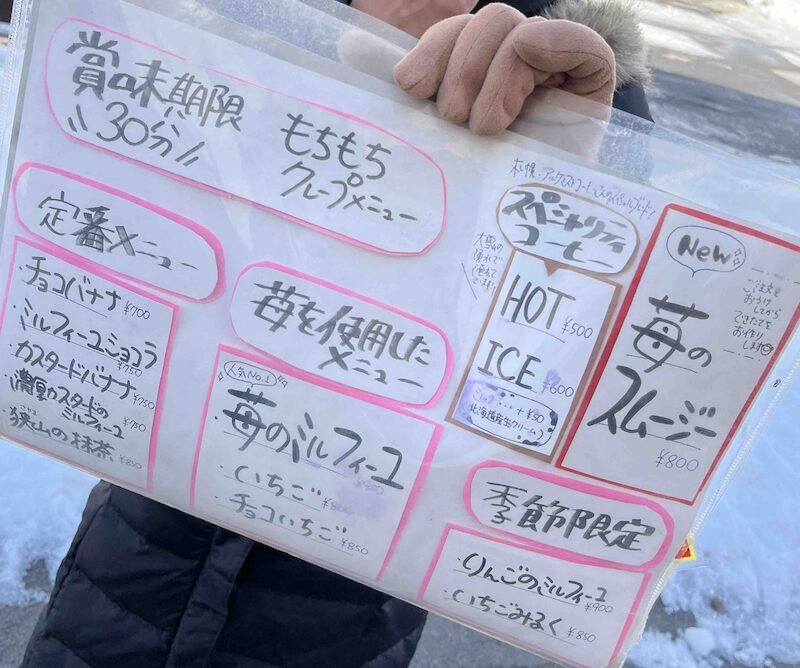 賞味期限
30分
もちもち
クレープメニュー
定番メニュー
・チョコバナナ ¥700
・ミルフィーユショコラ ¥750
・カスタードバナナ ¥750
・濃厚カスタードの
ミルフィーユ ¥750
・狭山の抹茶 ¥850
苺を使用した
メニュー
人気No.1
・苺のミルフィーユ
・いちご
・チョコいちご ¥850
スペシャリティ
コーヒー
HOT ¥500
ICE ¥600
ミルク…+¥50
New
ご注文を
おうけ
してから
できたてを
お作り
します
苺の
スムージー
¥800
季節限定
・りんごのミルフィーユ
¥900
・いちごみるく ¥850